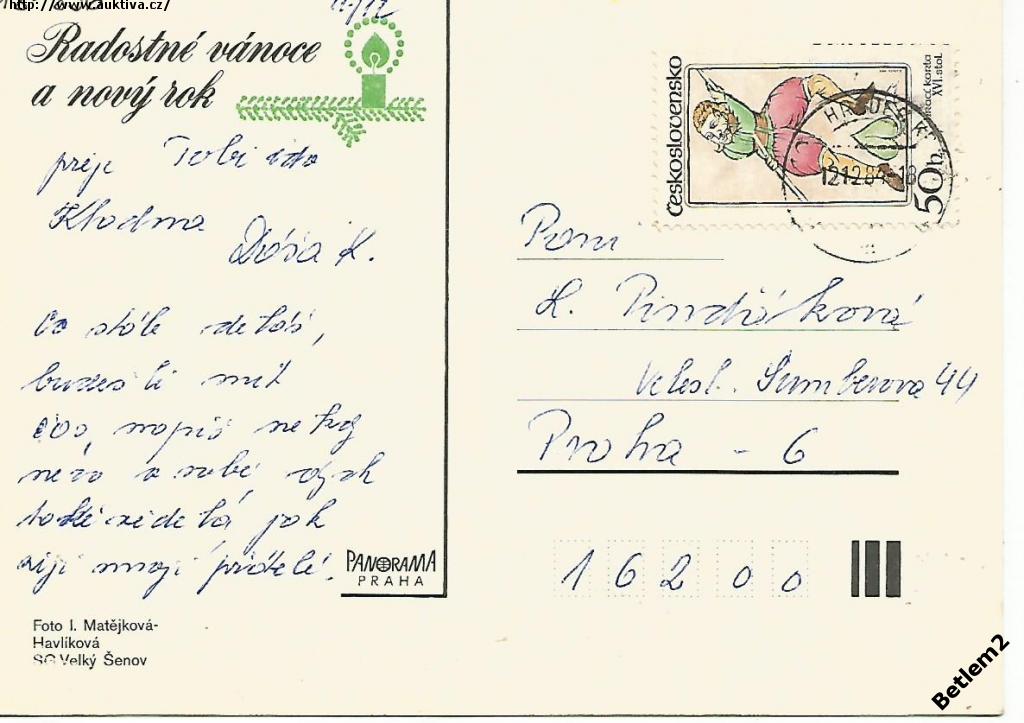 http://www.auktiva.cz/
Radostné vánoce
a nový rok
přeje Tobi
Dáša K.
Co stále deláš,
budeš li mít
čas, napiš nekdy
neco o sobě
jak
žijí moji přátelé.
PANORAMA
PRAHA
Foto I. Matějková-
Havlíková
SČ Velký Šenov
Československo
hrací karta
XVI. stol.
50h
12.12.84-18
Paní
L. Pindřáková
Velesl. Šumberova 44
Praha - 6
16200
Betlem2